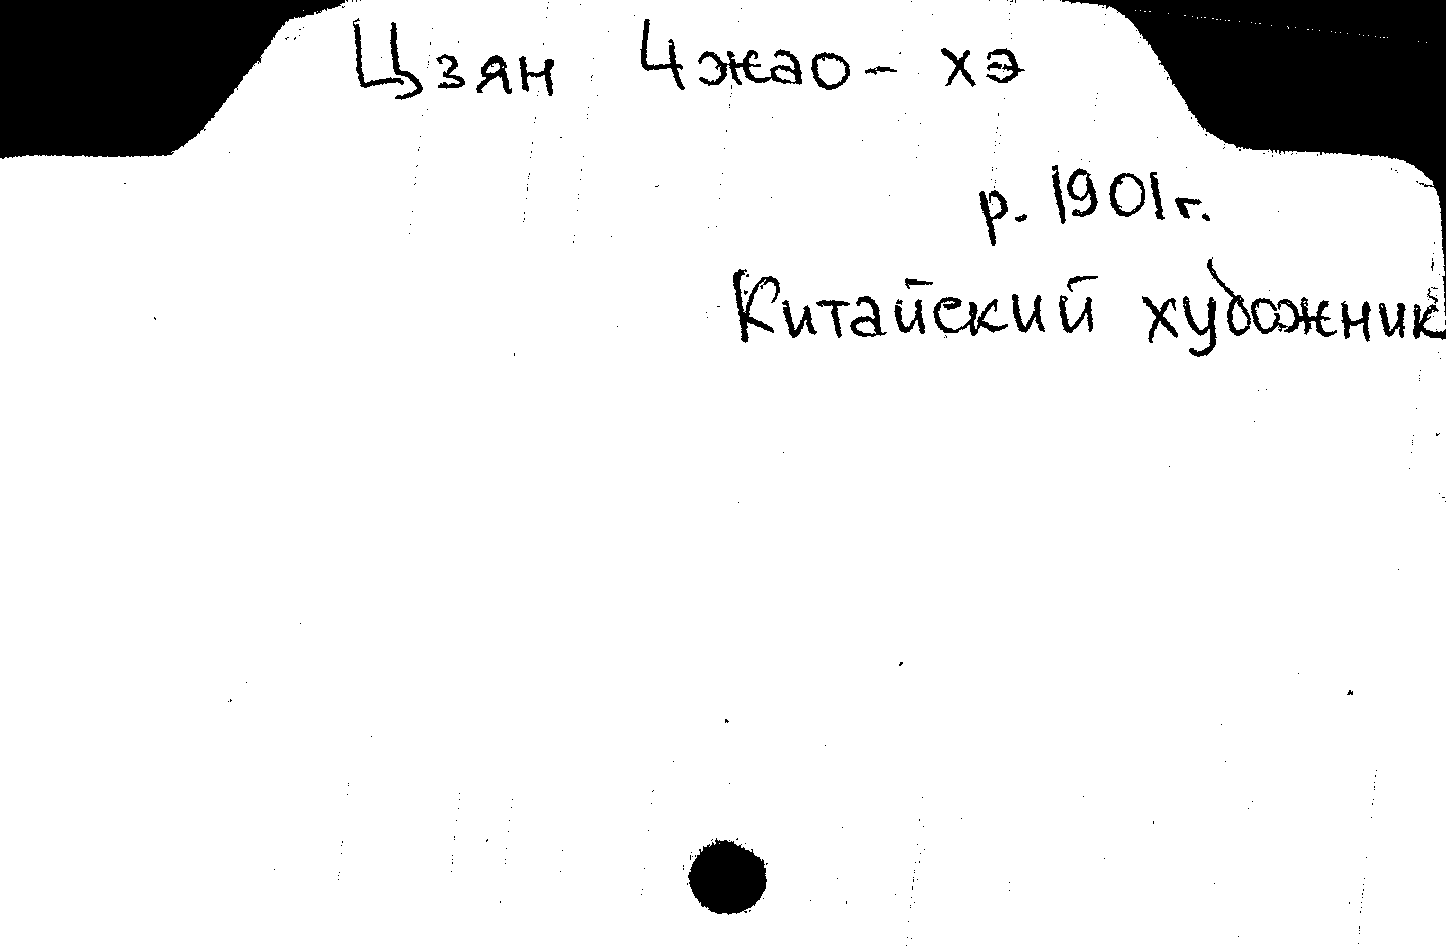 Цзян Чжао-хэ
р. 1901г.
Китайский художник